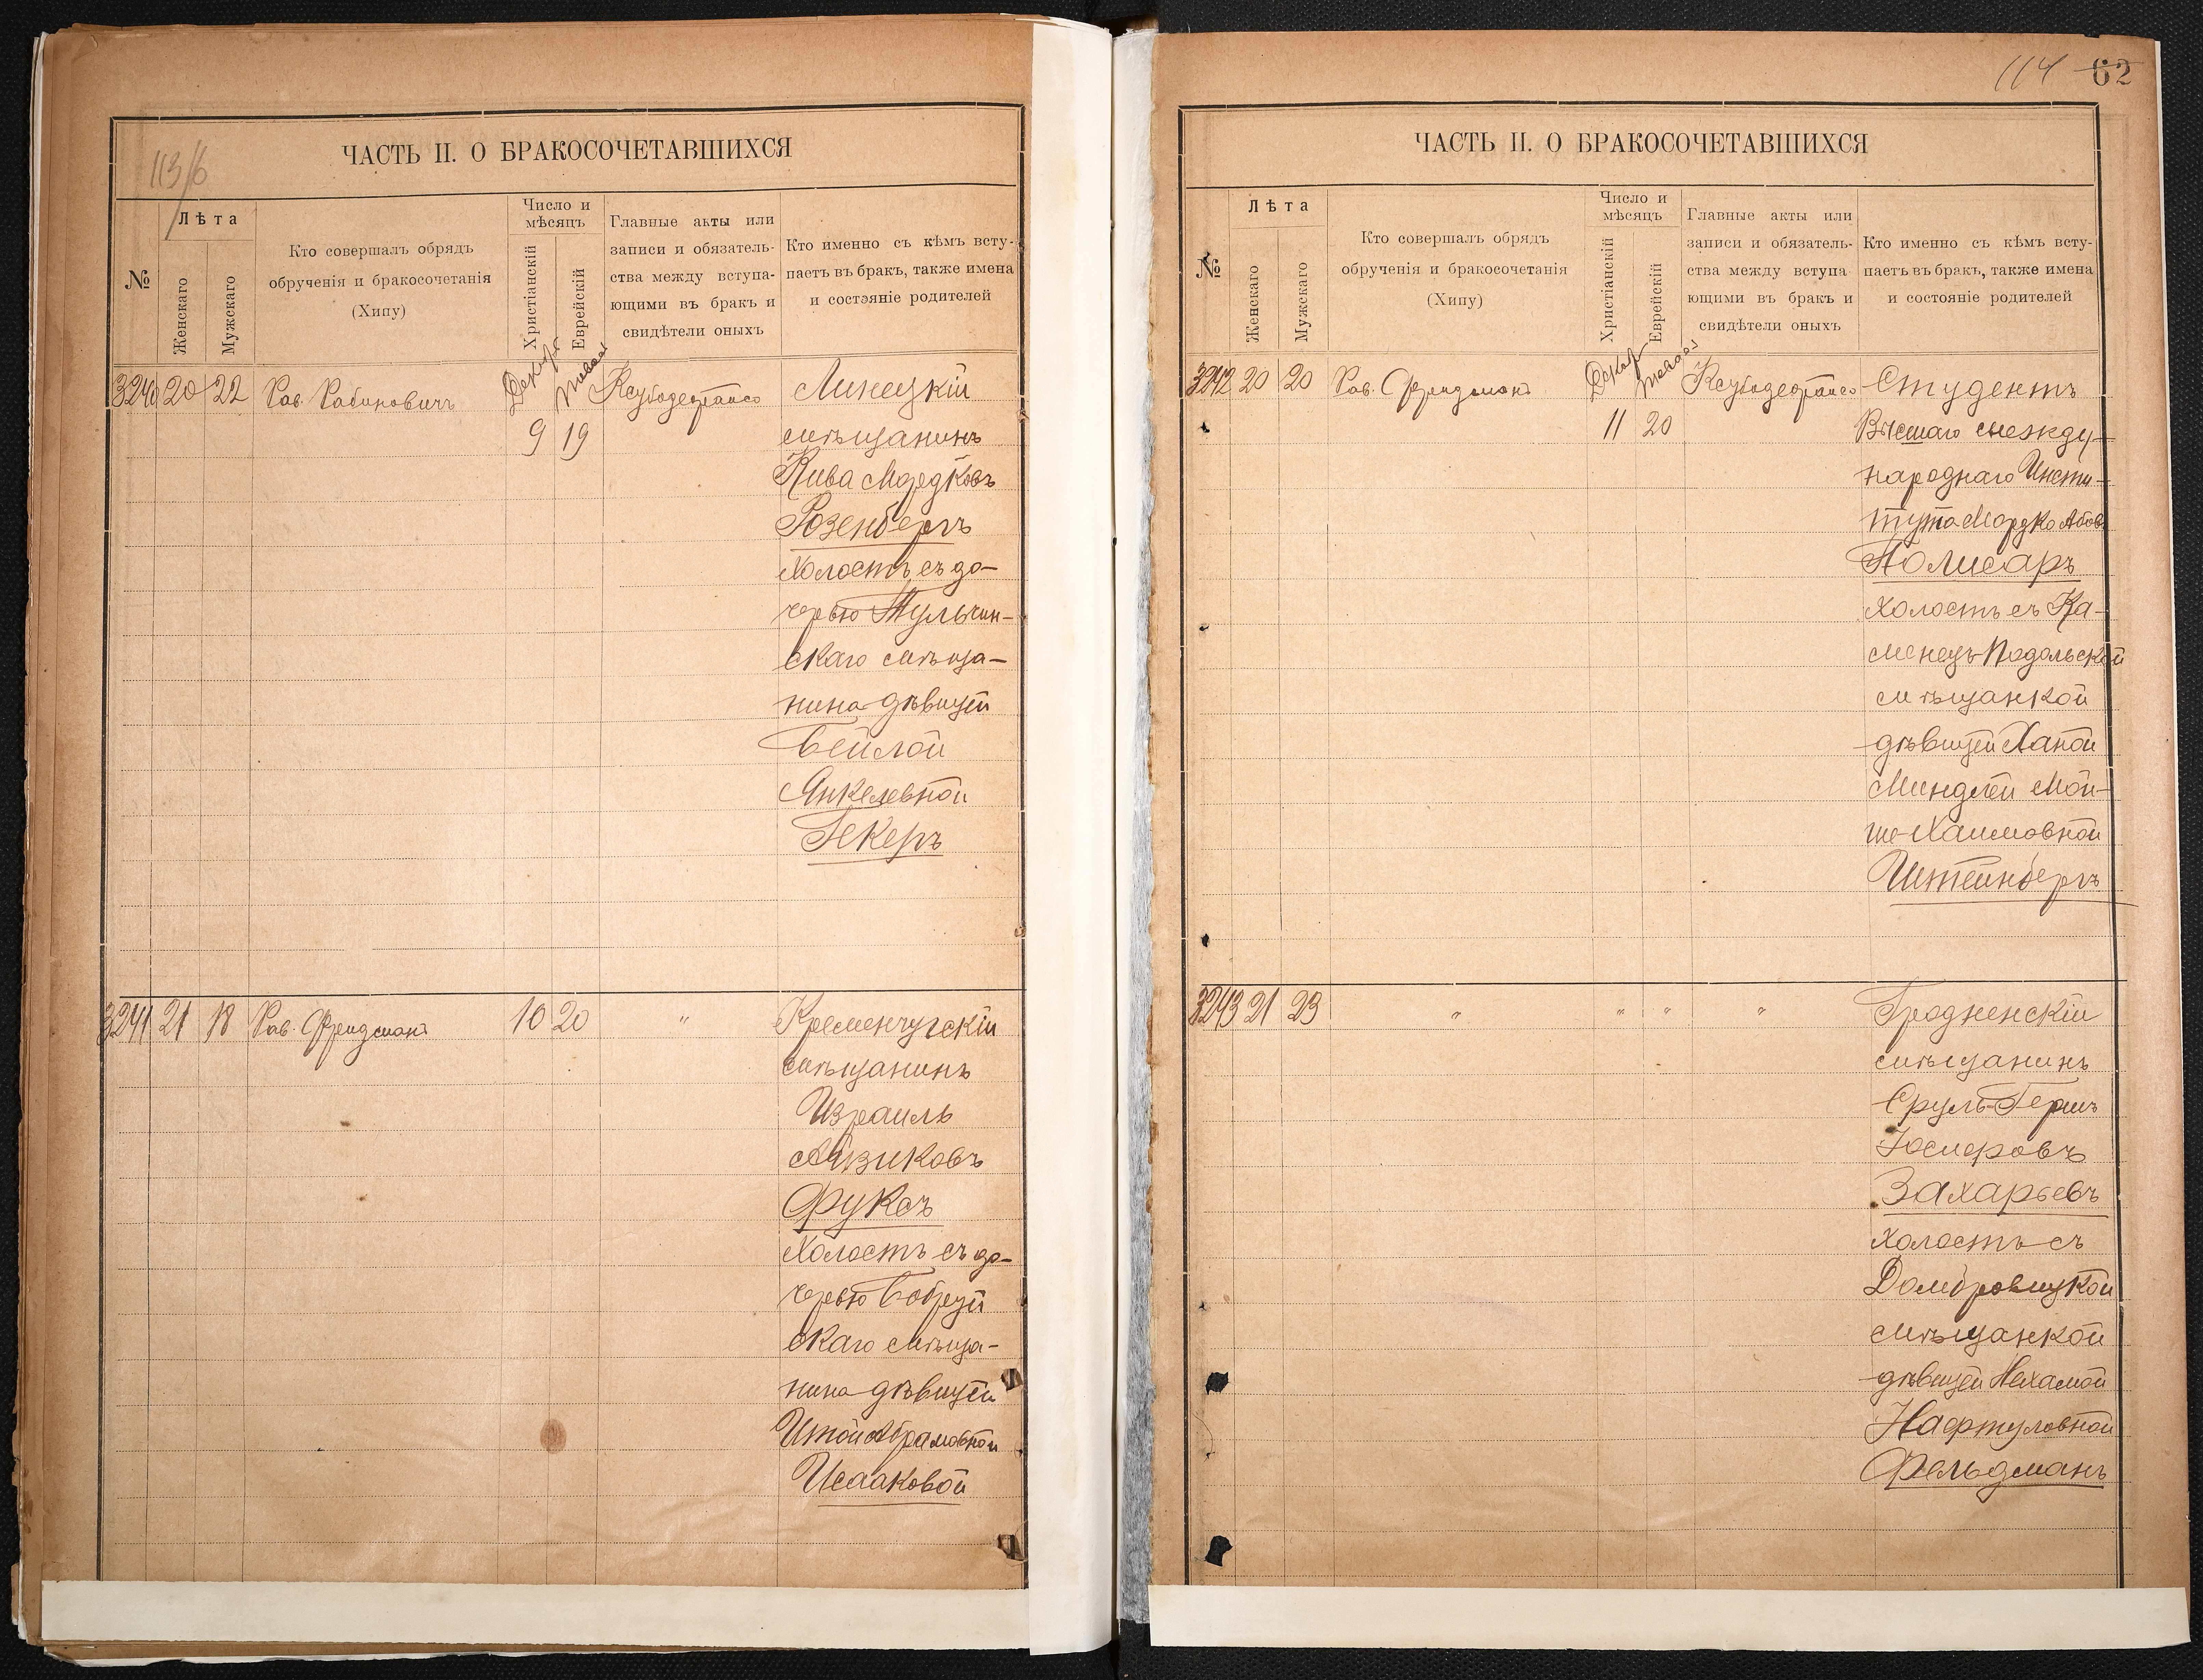 113/б
ЧАСТЬ II. О БРАКОСОЧЕТАВШИХСЯ
№
Лѣта
Женскаго
Мужскаго
Кто совершалъ обрядъ
обрученія и бракосочетанія
(Хипу)
Число и
мѣсяцъ
Христіанскій
Еврейскій
Главные акты или
записи и обязатель-
ства между вступа-
ющими въ бракъ и
свидѣтели оныхъ
Кто именно съ кѣмъ всту-
паетъ въ бракъ, также имена
и состояніе родителей
3240 20 22 Рав. Рабиновичъ
9 19
Линецкій
мѣщанинъ
Кива Мордковъ
Розенбергъ
холостъ съ до-
черью Тульчин-
скаго мѣща-
нина дѣвицей
Бейлой
Янкелевной
Гекеръ
3241 21 18 Рав. Фридманъ 10 20 "
Кременчугскій
мѣщанинъ
Израиль
Айзиковъ
Фуксъ
холостъ съ до-
черью Бобруй
скаго мѣща-
нина дѣвицей
Итой Абрамовной
Исааковой
114 62
ЧАСТЬ II. О БРАКОСОЧЕТАВШИХСЯ
№
Лѣта
Женскаго
Мужскаго
Кто совершалъ обрядъ
обрученія и бракосочетанія
(Хипу)
Число и
мѣсяцъ
Христіанскій
Еврейскій
Главные акты или
записи и обязатель-
ства между вступа
ющими въ бракъ и
свидѣтели оныхъ
Кто именно съ кѣмъ всту-
паетъ въ бракъ, также имена
и состояніе родителей
3242 20 20 Рав. Фридманъ
11 20
Студентъ
Высшаго между-
народнаго Инсти-
тута Мордко Абов.
Полисаръ
холостъ съ Ка-
менецъ-Подольской
мѣщанкой
дѣвицей Ханой
Миндлей Мой-
ше-Хаимовной
Штейнбергъ
3243 21 23 " " " "
Гродненскій
мѣщанинъ
Сруль-Гершъ
Іосифовъ
Захарьевъ
холостъ съ
Домбровицкой
мѣщанкой
дѣвицей Нехамой
Нафтуловной
Фельдманъ